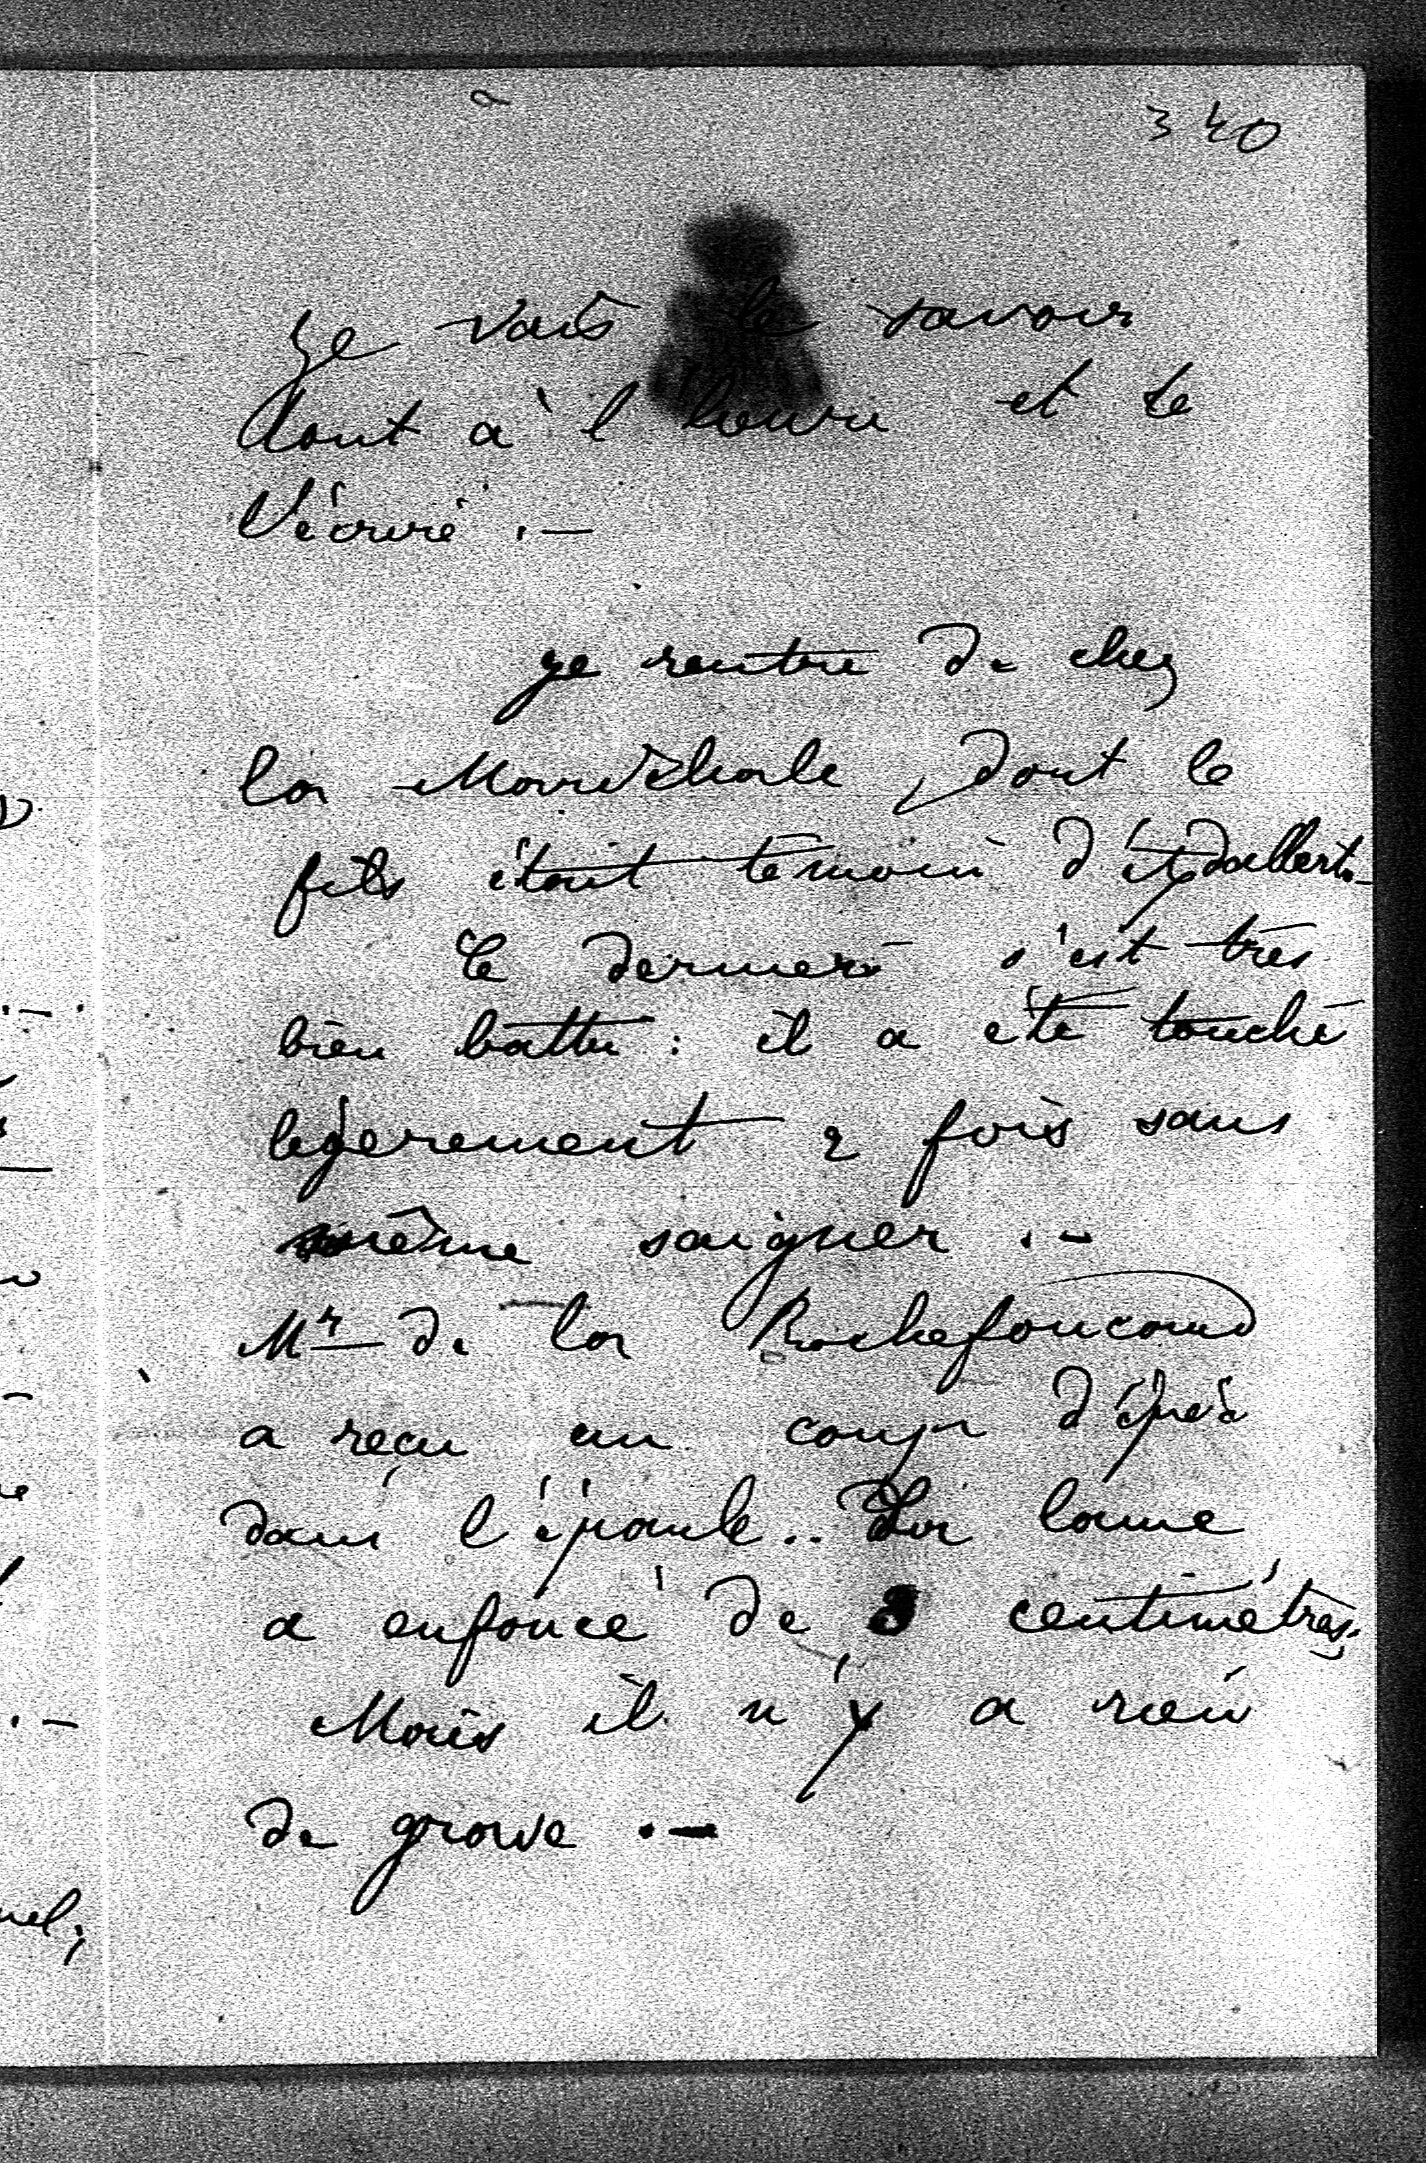 340
Je vais le savoir
tout à l'heure et te
l'écriré .—
je rentre de chez
la Maréchale, dont le
fils était témoin d'Adalbert.
Ce dernier s'est très
bien battu : il a été touché
légerement 2 fois sans
même saigner .—
Mr de la Rochefoucaud
a reçu un coup d'épée
dans l'épaule .. La lame
a enfoncé de 3 centimétres.
Mais il n'y a rien
de grave .—